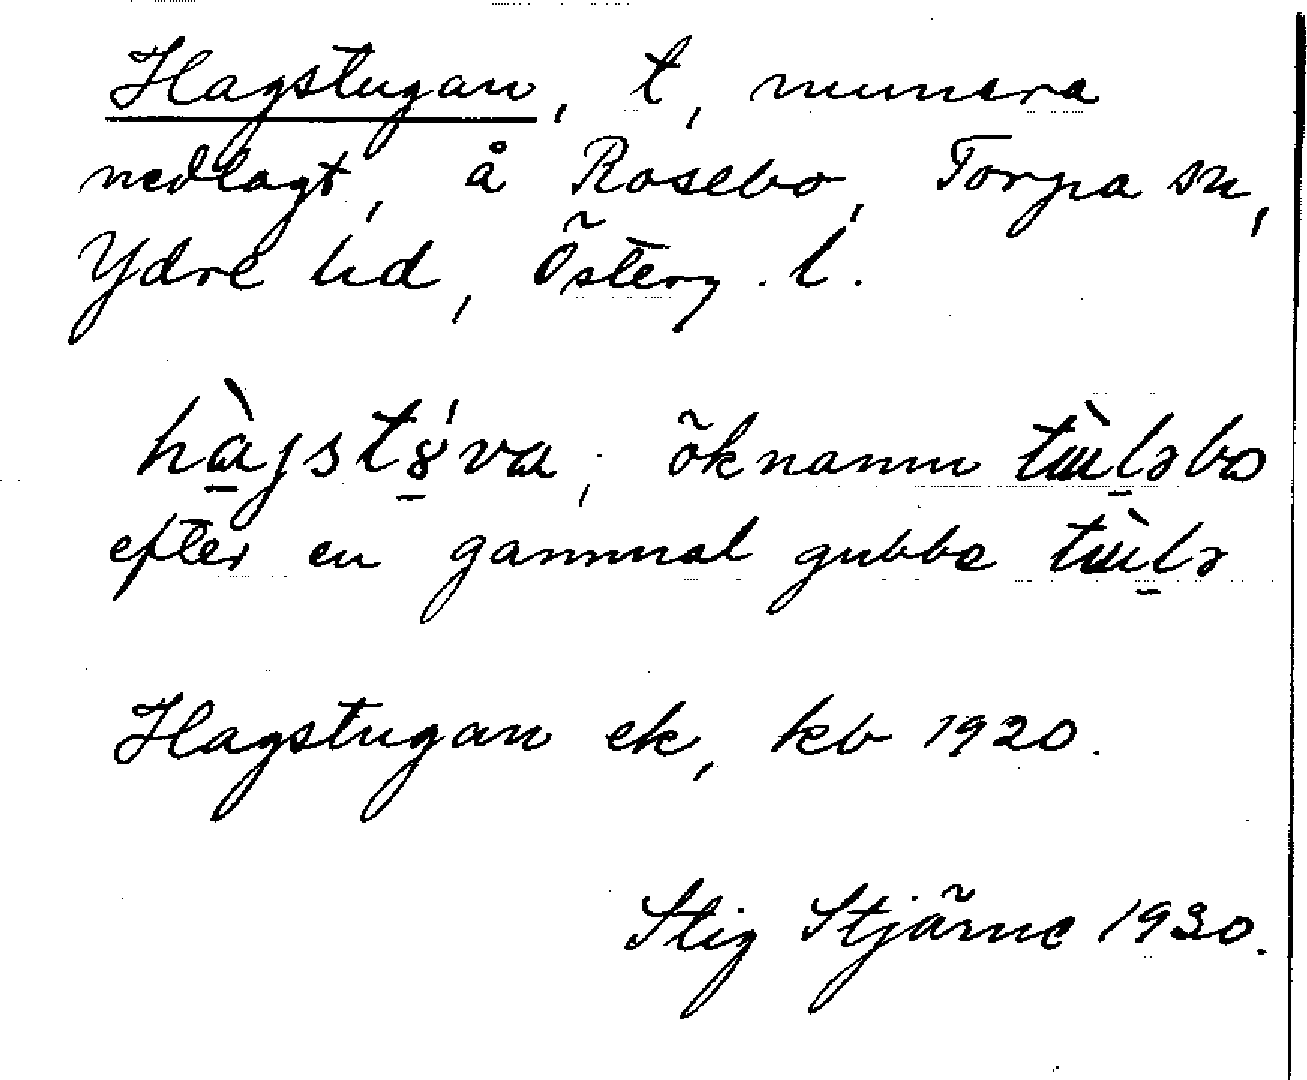 Hagstugan, t, numera
nedlagt, å Rosebo, Torpa sn,
Ydre hd, Österg. l.
hàgst8́va; öknamn tɯ̀ləbo
efter en gammal gubbe tɯ̀lə
Hagstugan ek, kb 1920.
Stig Stjärne 1930.